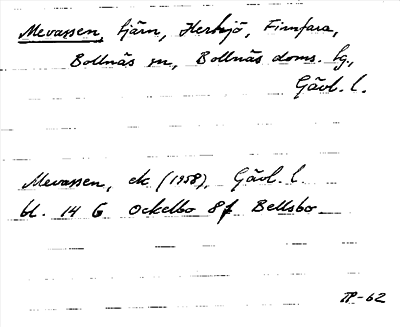 Mevassen, tjärn, Herte­jö, Finnfara,
Bollnäs sn, Bollnäs doms. tg.,
Gävl. l.
Mevassen, ek (1958), Gävl. l.
bl. 14 G Ockelbo 8f Bellsbo
-62